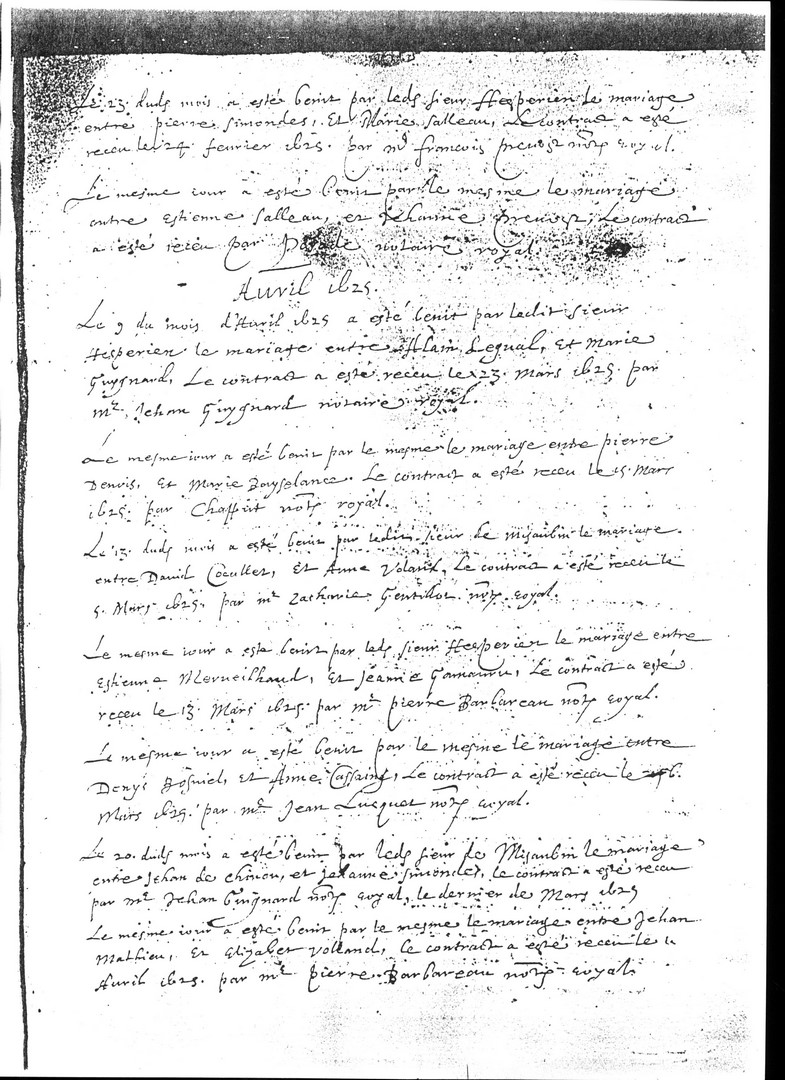 Le 23. duds mois a esté benit par leds sieur Hesperien le mariage
entre pierre Simondes, Et Marie Salleau, Le contract a esté
receu le 24 fevrier 1625. par me françois Preuost notre royal.
Le mesme iour a esté benit par le mesme le mariage
entre Estienne Salleau, et Jehanne Preuost, Le contract
a esté receu par notaire royal.
Auril 1625.
Le 9 du mois d'Auril 1625 a esté benit par ledit sieur
Hesperien le mariage entre Alain Legual, Et Marie
Guygnard, Le contract a esté receu le 23. Mars 1625. par
me. Jehan Guygnard notaire royal.
Le mesme iour a esté benit par le mesme le mariage entre pierre
Denis, Et Marie Le contract a esté receu le 15 Mars
1625. par notre royal.
Le 13. duds mois a esté benit par ledit sieur de Misaubin le mariage
entre David Et Anne Voland, Le contract a esté receu le
5. Mars 1625. par me Zacharie Gentillot notre royal.
Le mesme iour a esté benit par leds sieur Hesperien le mariage entre
Estienne Merveilhaud, Et Jeanne Le contract a esté
receu le 13. Mars 1625. par me pierre Barbareau notre royal.
Le mesme iour a esté benit par le mesme le mariage entre
Denys Et Anne Cassaing, Le contract a esté receu le
Mars 1625. par me Jean Lucquet notre royal.
Le 20. duds mois a esté benit par leds sieur de Misaubin le mariage
entre Jehan de chinon, et Jehanne Simondes, Le contract a esté receu
par me Jehan Guignard notre royal, le dernier de Mars 1625
Le mesme iour a esté benit par le mesme le mariage entre Jehan
Mathieu, Et Elizabet Volland, Le contract a esté receu le 11
Auril 1625. par me pierre Barbareau notre royal.